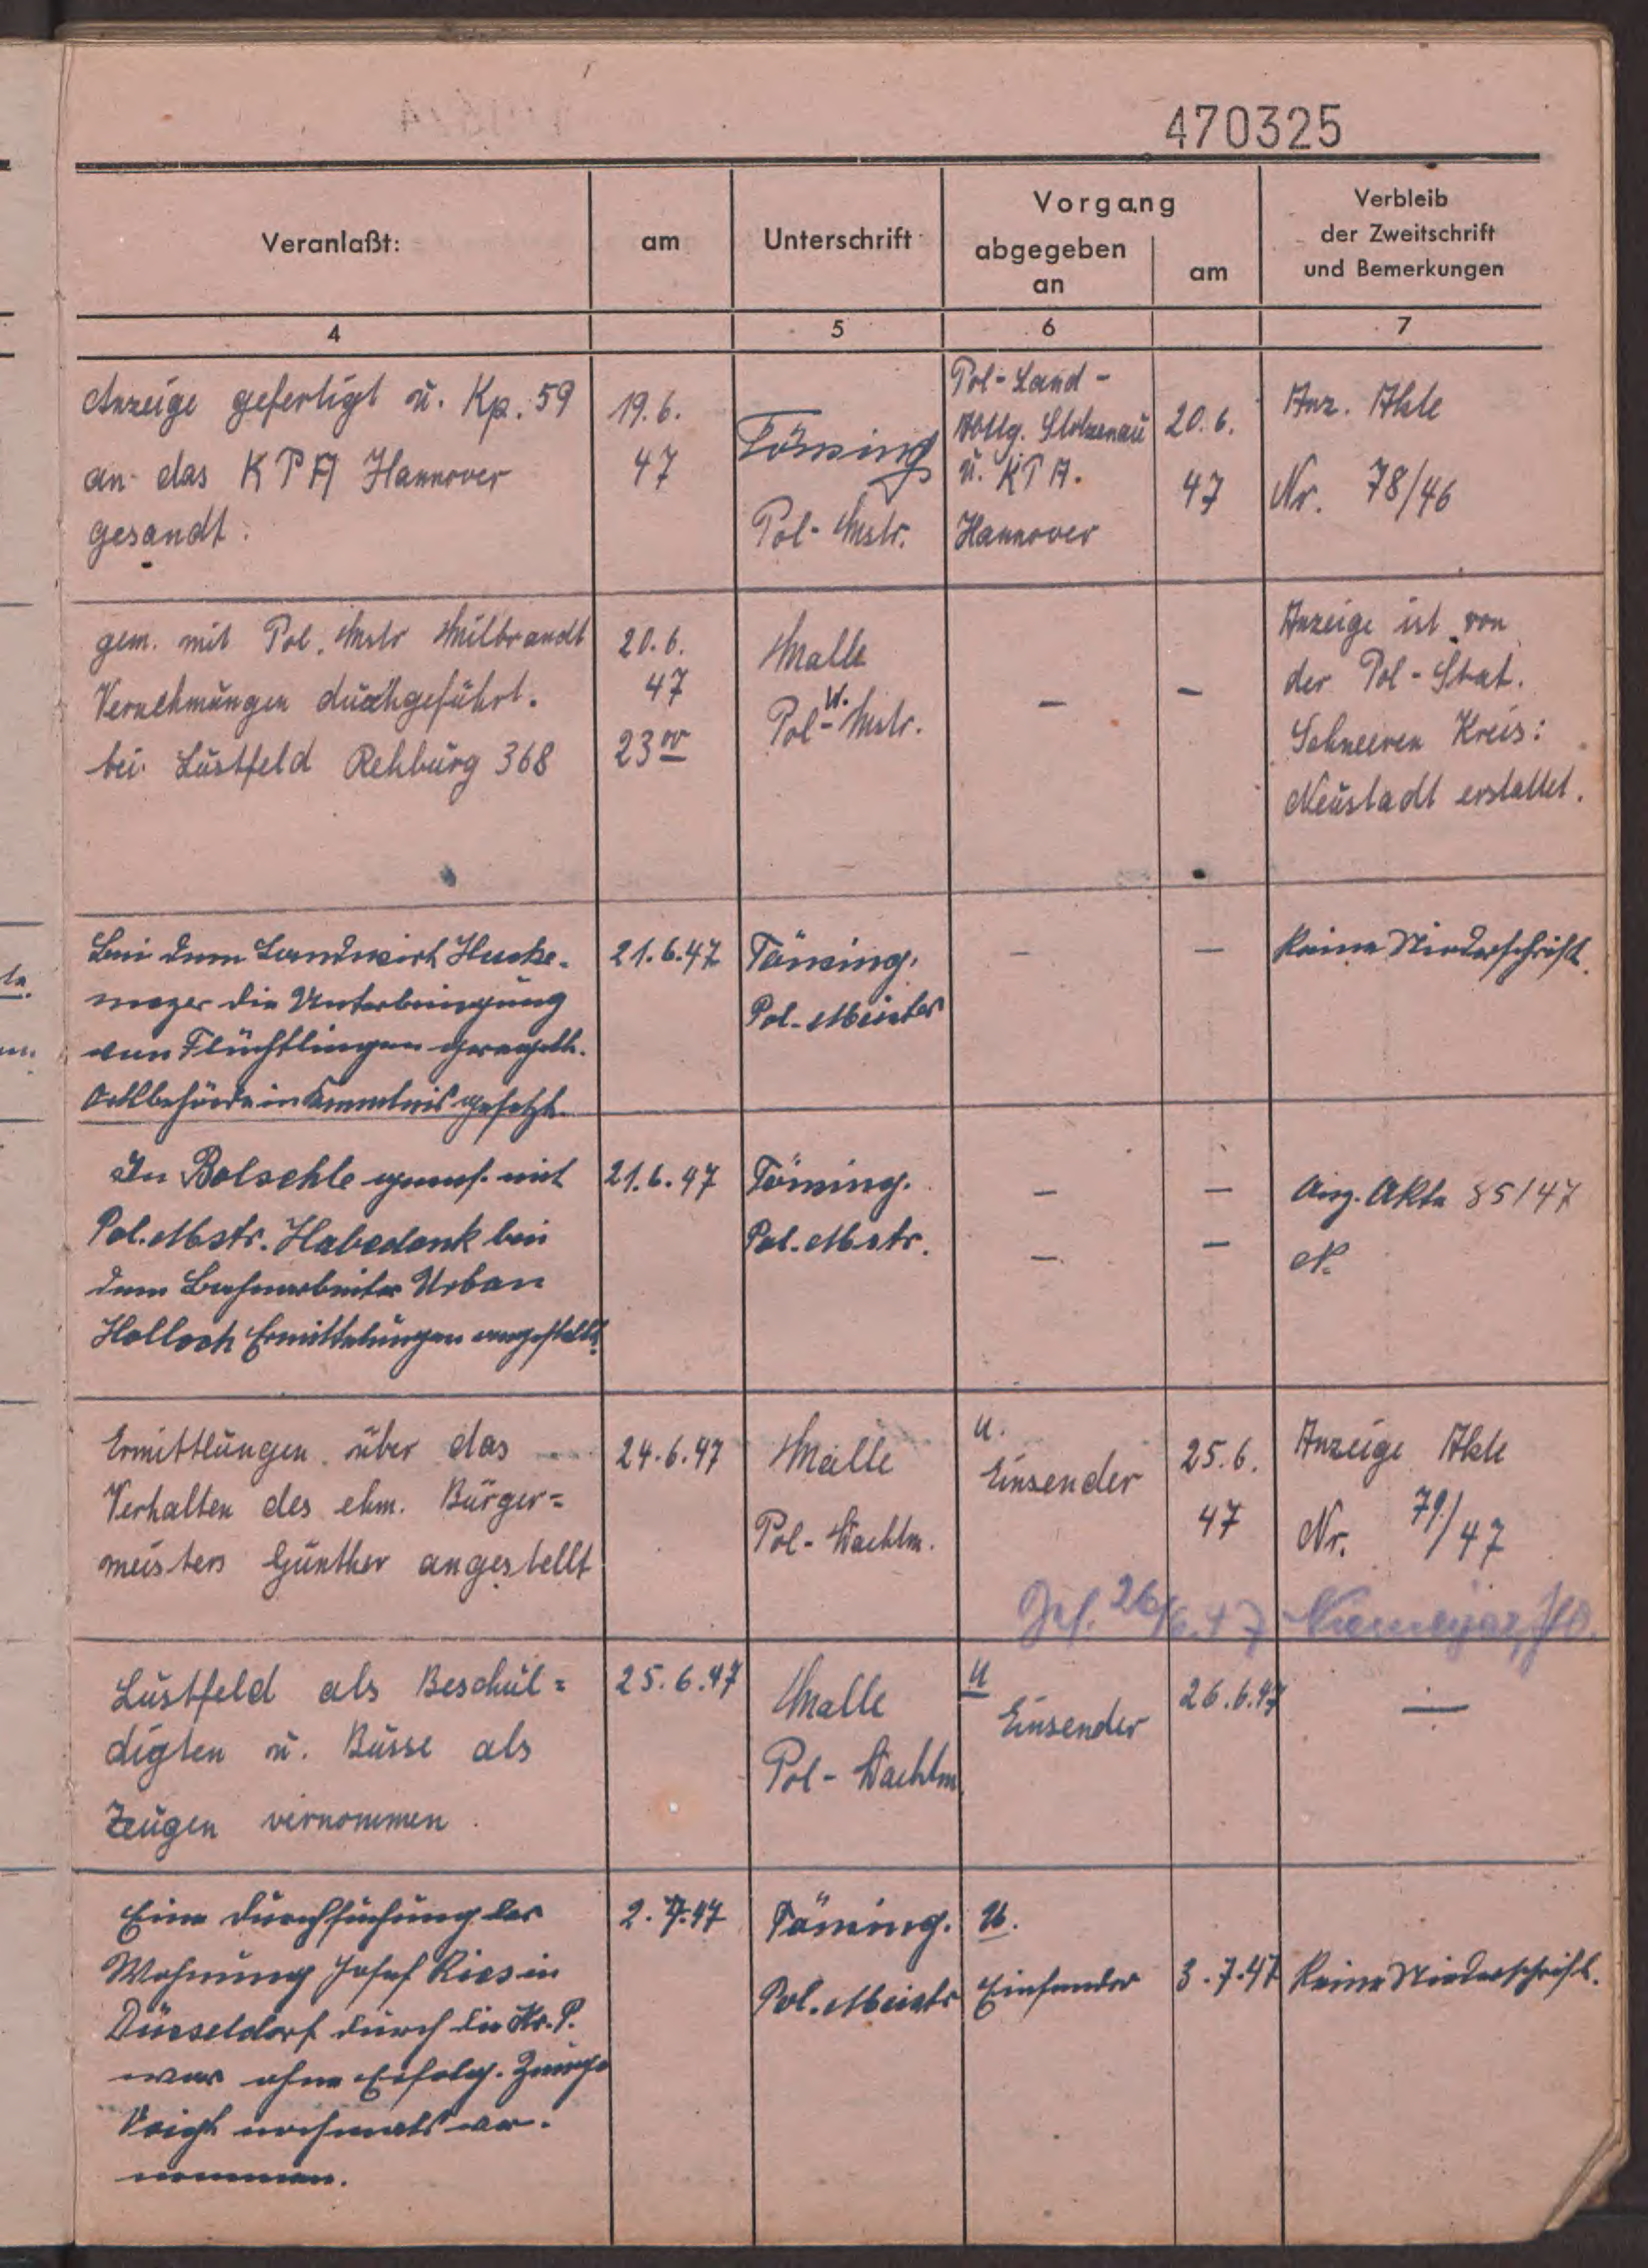 470325
Veranlaßt:
am
Unterschrift
Vorgang
abgegeben
an
am
Verbleib
der Zweitschrift
und Bemerkungen
4
5
6
7
Anzeige gefertigt u. Kp. 59
an das KPA Hannover
gesandt.
19.6.
47
Tönsing
Pol-Mstr.
Pol-Land-
Abtlg. Stolzenau
u. KPA.
Hannover
20.6.
47
Anz. Akte
Nr. 78/46
gem. mit Pol. Mstr Milbrandt
Vernehmungen durchgeführt.
bei Lustfeld Rehburg 368
20.6.
47
23 00
Malle
Pol-W. Mstr.
—
—
Anzeige ist von
der Pol-Stat.
Schneeren Kreis:
Neustadt erstattet.
Bei dem Landwirt Hucke-
meyer die Unterbringung
von Flüchtlingen geregelt.
Ortsbehörde in Kenntnis gesetzt.
21.6.47
Tönsing.
Pol-Meister
—
—
Keine Niederschrift.
In Bolsehle gems. mit
Pol. Mstr. Habedank bei
dem Bahnarbeiter Urban
Holloch Ermittelungen angestellt.
21.6.47
Tönsing.
Pol. Mstr.
—
—
—
—
Anz. Akte 85/47
N.
Ermittlungen über das
Verhalten des ehm. Bürger=
meisters Günther angestellt
24.6.47
Malle
Pol-Wachtm.
U.
Einsender
25.6.
47
Anzeige Akte
Nr. 79/47
Ges. 26/6.47
Lustfeld als Beschul=
digten u. Busse als
Zeugen vernommen.
25.6.47
Malle
Pol-Wachtm
U
Einsender
26.6.47
—
Eine Durchsuchung der
Wohnung Josef Ries in
Düsseldorf durch die Kr. P.
war ohne Erfolg. Zeuge
Voigt nochmals ver-
nommen.
2.7.47
Tönsing.
Pol. Meistr
U.
Einsender
3.7.47
Keine Niederschrift.